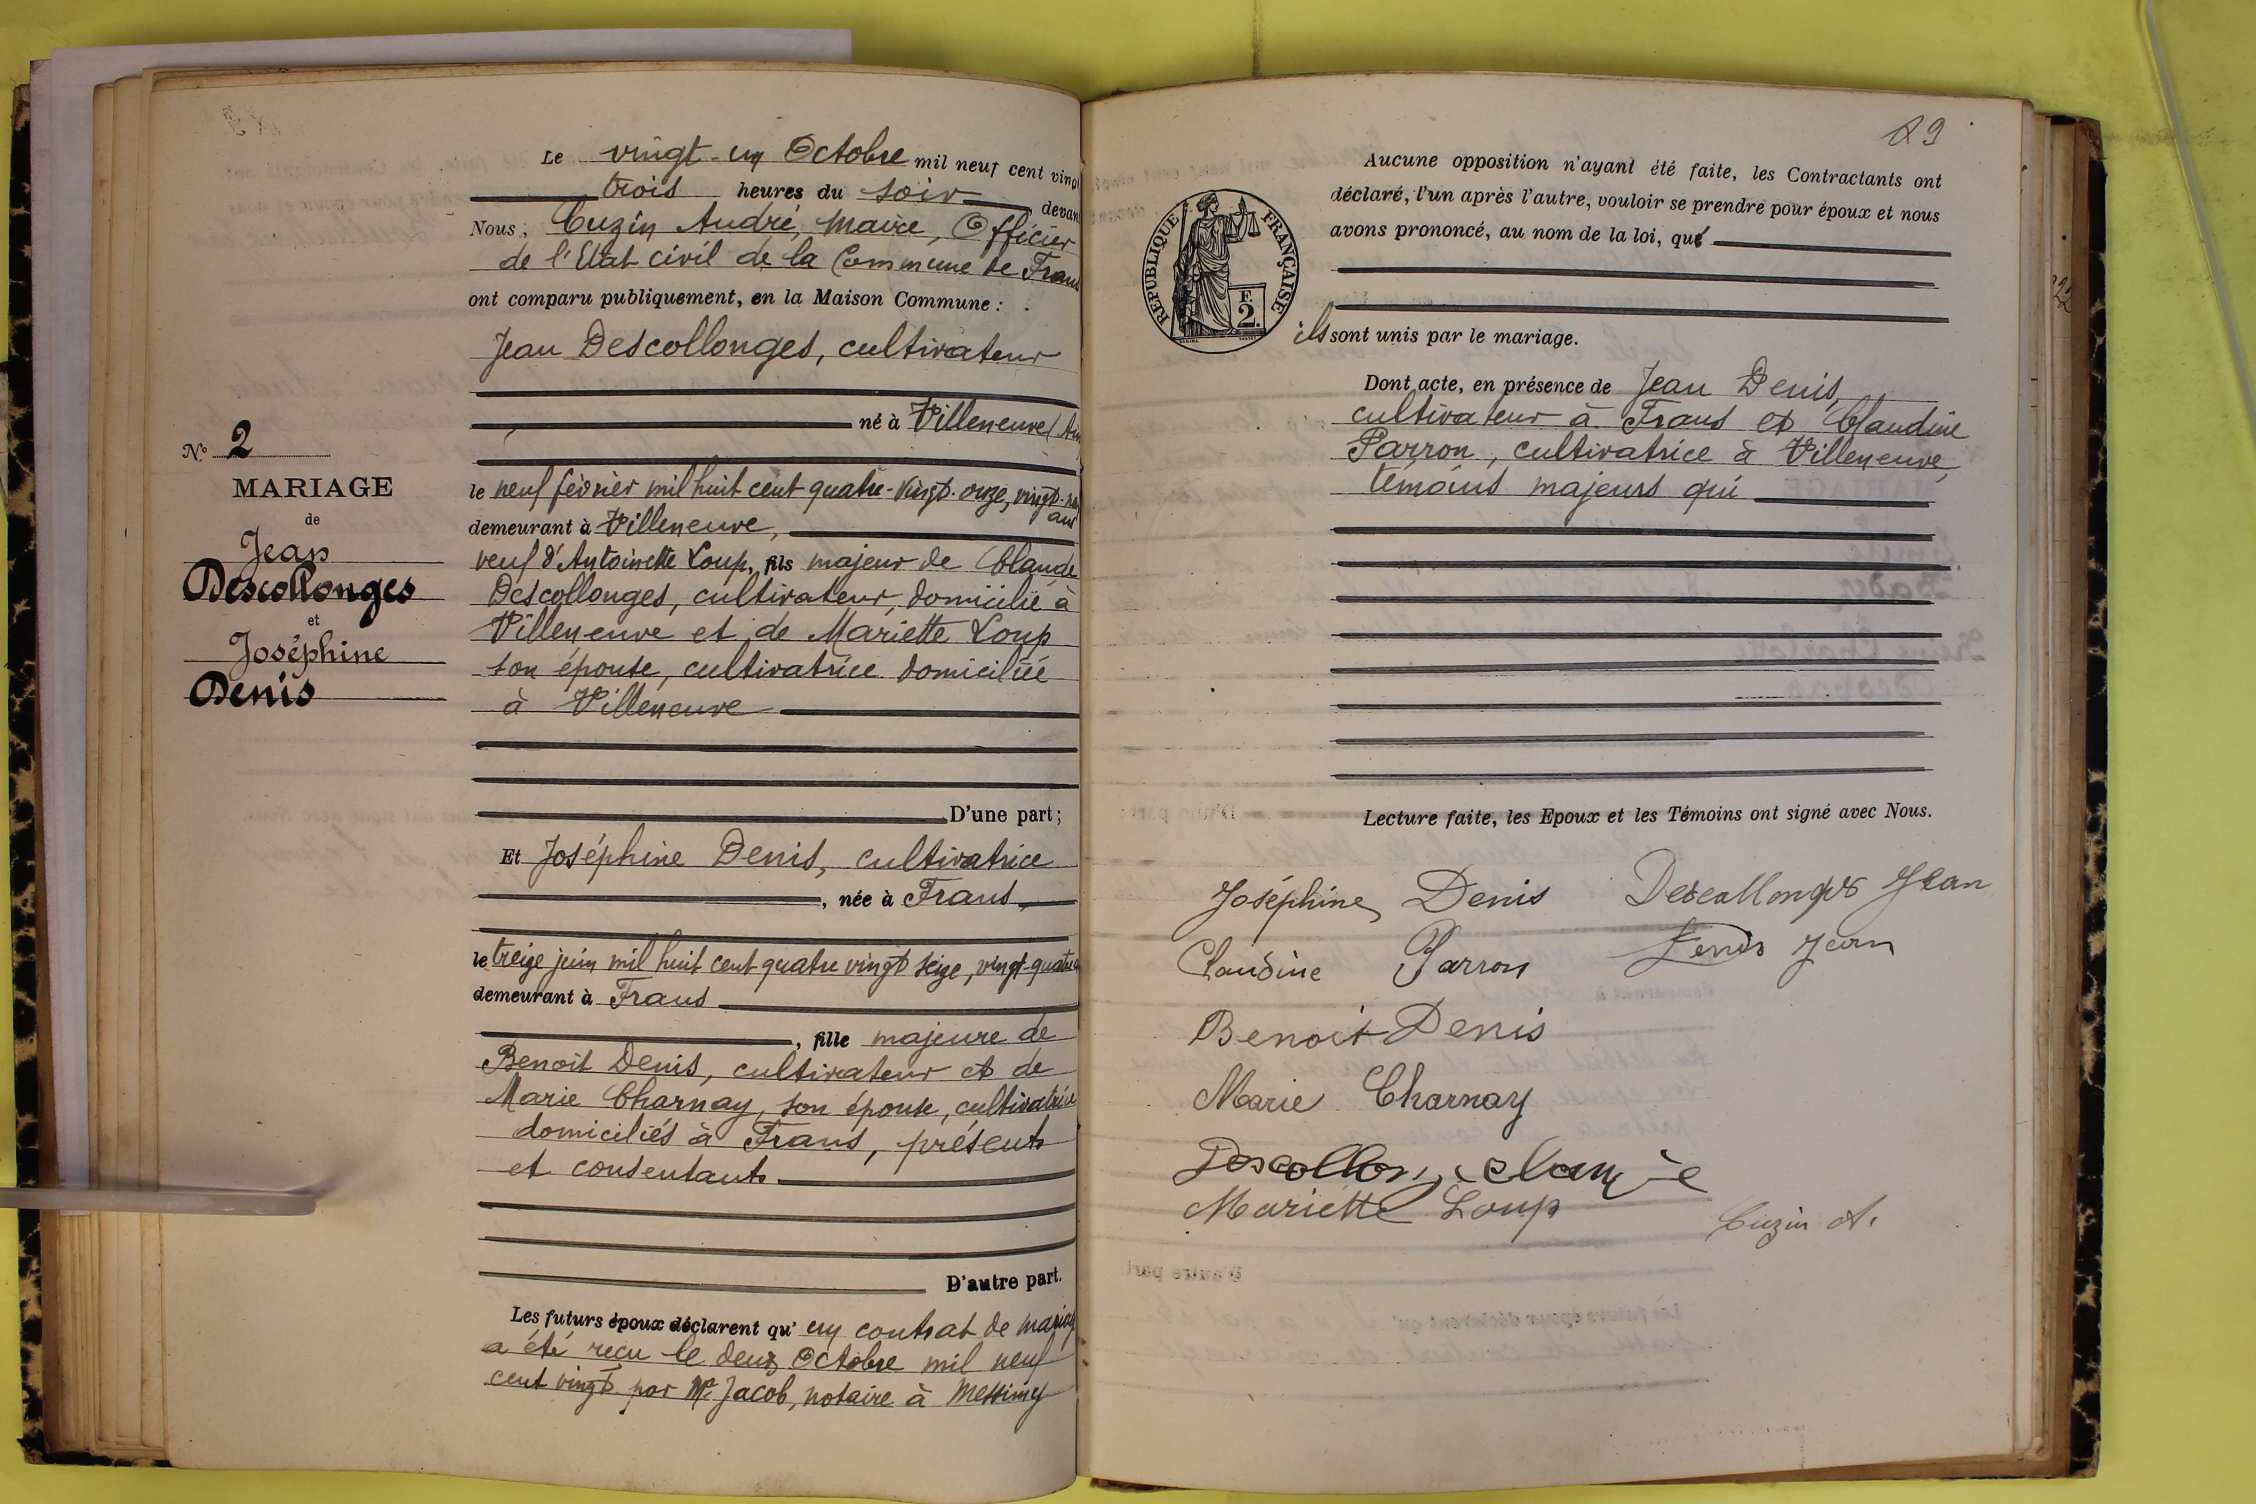 Le vingt-un Octobre mil neuf cent vingt
trois heures du soir devan
Nous, Cuzin André, maire, Officier
de l'Etat civil de la Commune de Frans
ont comparu publiquement, en la Maison Commune :
Jean Descollonges, cultivateur
né à Villeneuve (Ain
le neuf février mil huit cent quatre-vingt-onze, vingt-neuf
ans
demeurant à Villeneuve,
veuf d'Antoinette Loup, fils majeur de Claude
Descollonges, cultivateur, domicilié à
Villeneuve et de Mariette Loup
son épouse, cultivatrice domiciliée
à Villeneuve
D'une part;
Et Joséphine Denis, cultivatrice
, née à Frans,
le treize juin mil huit cent quatre vingt seize, vingt-quatre
demeurant à Frans
, fille majeure de
Benoit Denis, cultivateur et de
Marie Charnay, son épouse, cultivatrice
domiciliés à Frans, présents
et consentants
D'autre part.
Les futurs époux déclarent qu' un contrat de mariag
a été reçu le deux Octobre mil neuf
cent vingt par Me Jacob, notaire à Messimy
No 2
MARIAGE
de
Jean
Descollonges
et
Joséphine
Denis
29
Aucune opposition n'ayant été faite, les Contractants ont
déclaré, l'un après l'autre, vouloir se prendre pour époux et nous
avons prononcé, au nom de la loi, que
REPUBLIQUE FRANÇAISE
F.
2.
ils sont unis par le mariage.
Dont acte, en présence de Jean Denis,
cultivateur à Frans et Claudine
Parron, cultivatrice à Villeneuve,
témoins majeurs qui
Lecture faite, les Epoux et les Témoins ont signé avec Nous.
Joséphine Denis Descollonges Jean
Claudine Parron Denis Jean
Benoit Denis
Marie Charnay
Descollon Claude
Mariette Loup
Cuzin A.